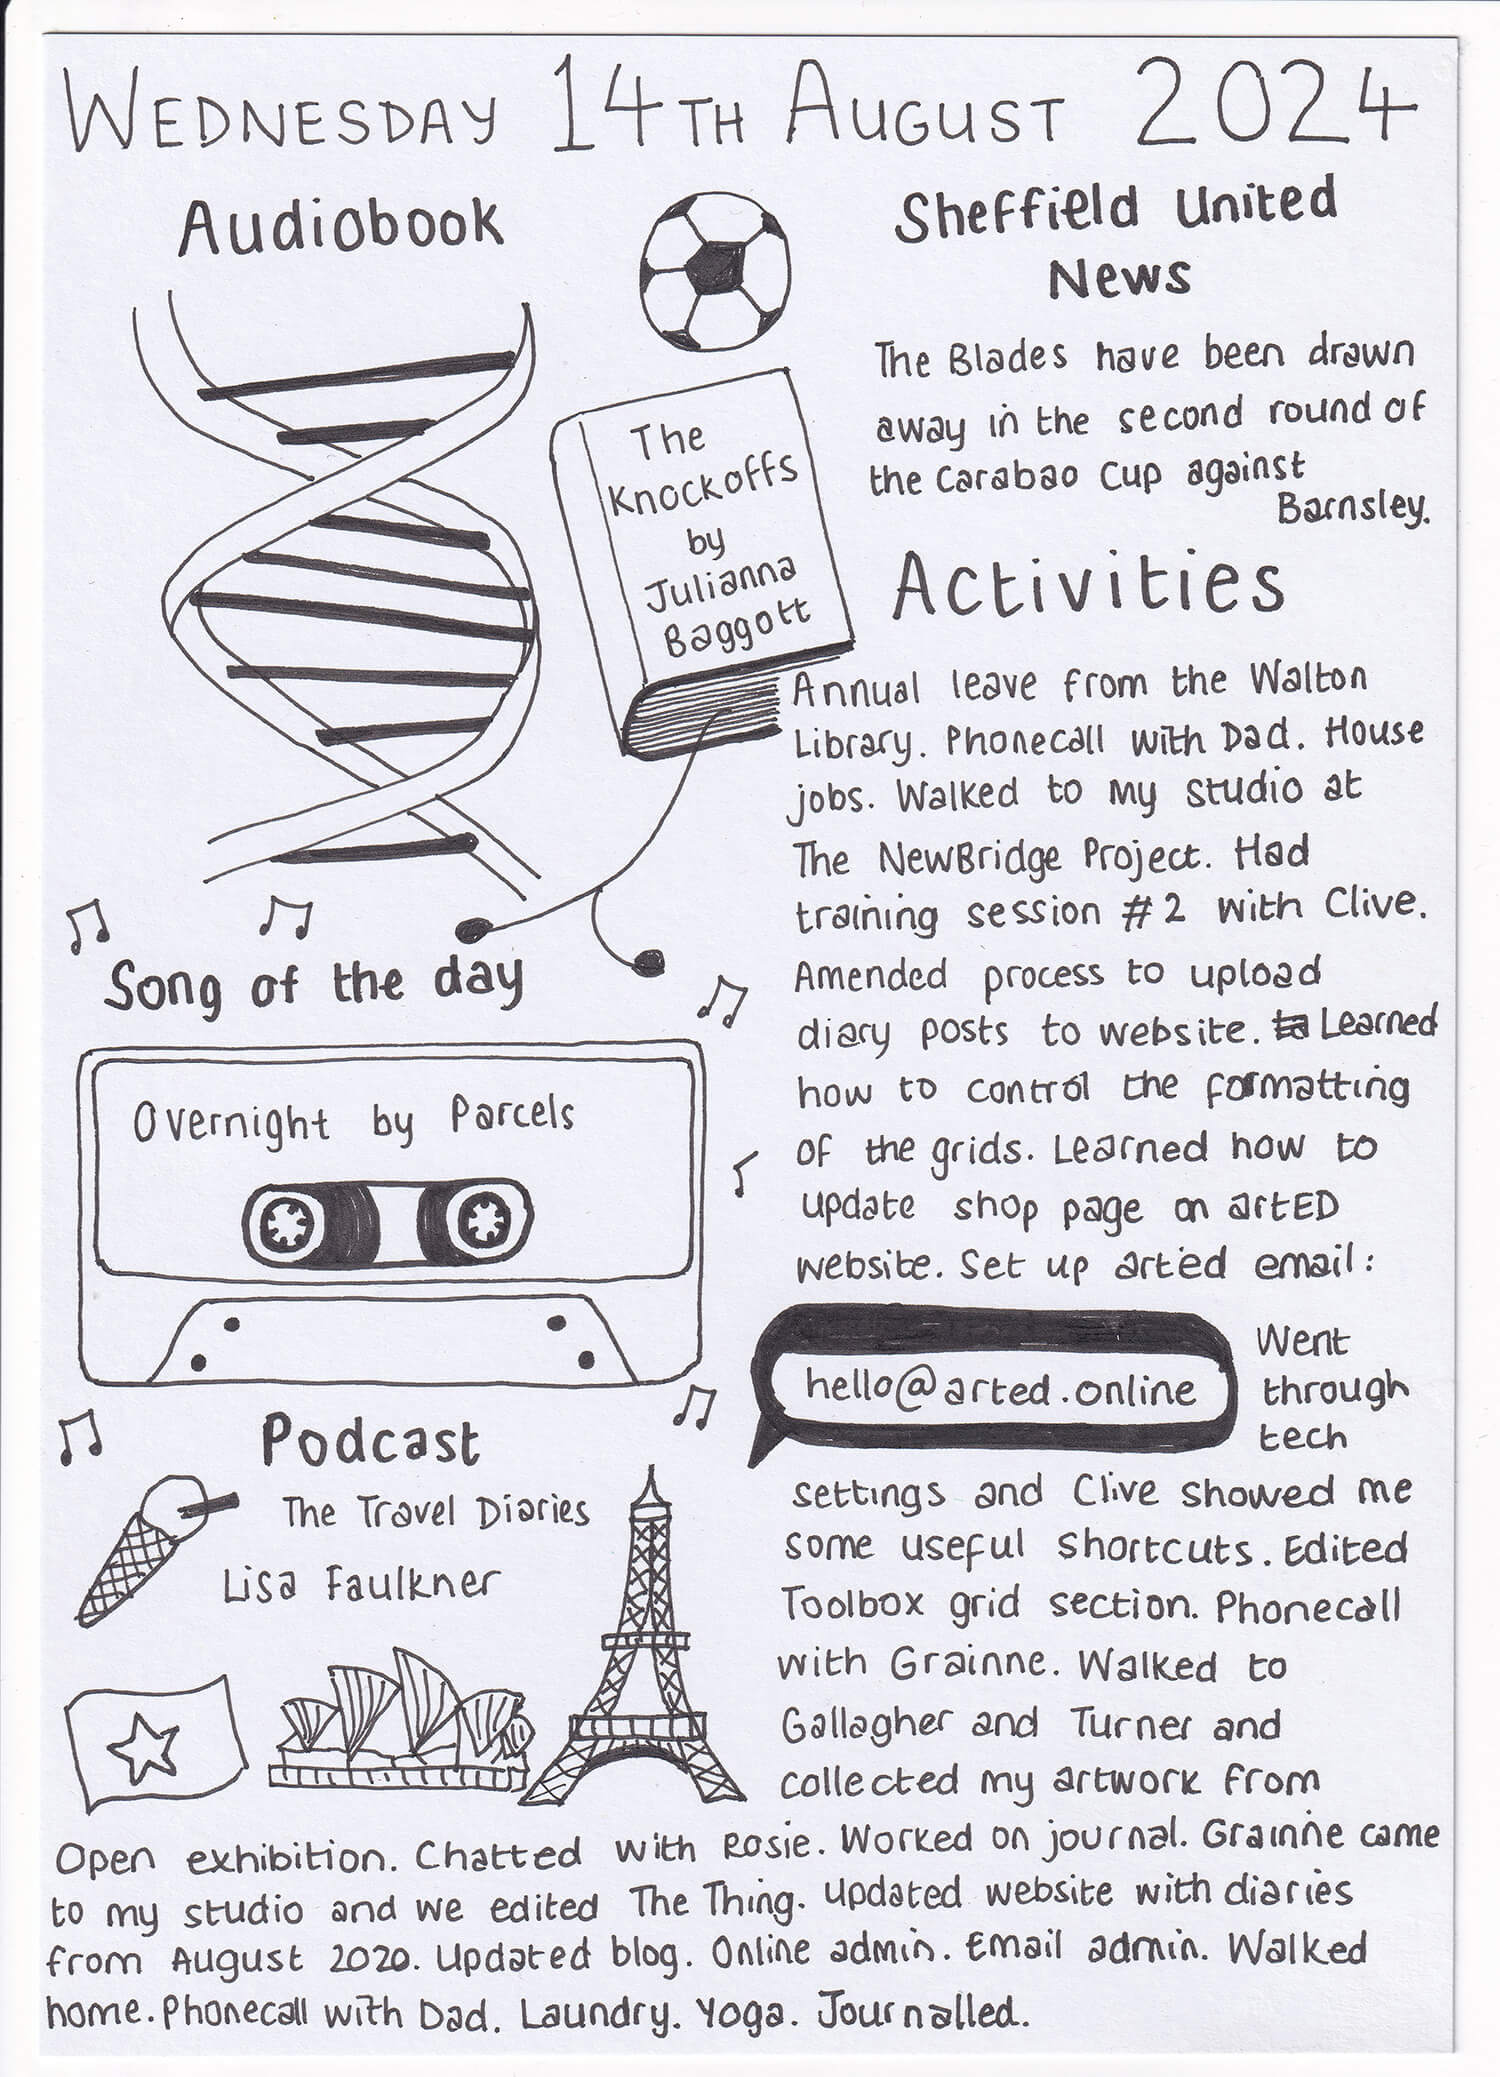 WEDNESDAY 14TH AUGUST 2024
Audiobook
The
Knockoffs
by
Julianna
Baggott
Sheffield United
News
The Blades have been drawn
away in the second round of
the Carabao Cup against
Barnsley.
Song of the day
Overnight by Parcels
Podcast
The Travel Diaries
Lisa Faulkner
Activities
Annual leave from the Walton
Library. Phonecall with Dad. House
jobs. Walked to my studio at
The NewBridge Project. Had
training session #2 with Clive.
Amended process to upload
diary posts to website. Learned
how to control the formatting
of the grids. Learned how to
update shop page on artED
website. Set up arted email:
hello@arted.online
Went
through
tech
settings and Clive showed me
some useful shortcuts. Edited
Toolbox grid section. Phonecall
with Grainne. Walked to
Gallagher and Turner and
collected my artwork from
Open exhibition. Chatted with Rosie. Worked on journal. Grainne came
to my studio and we edited The Thing. Updated website with diaries
from August 2020. Updated blog. Online admin. Email admin. Walked
home. Phonecall with Dad. Laundry. Yoga. Journalled.